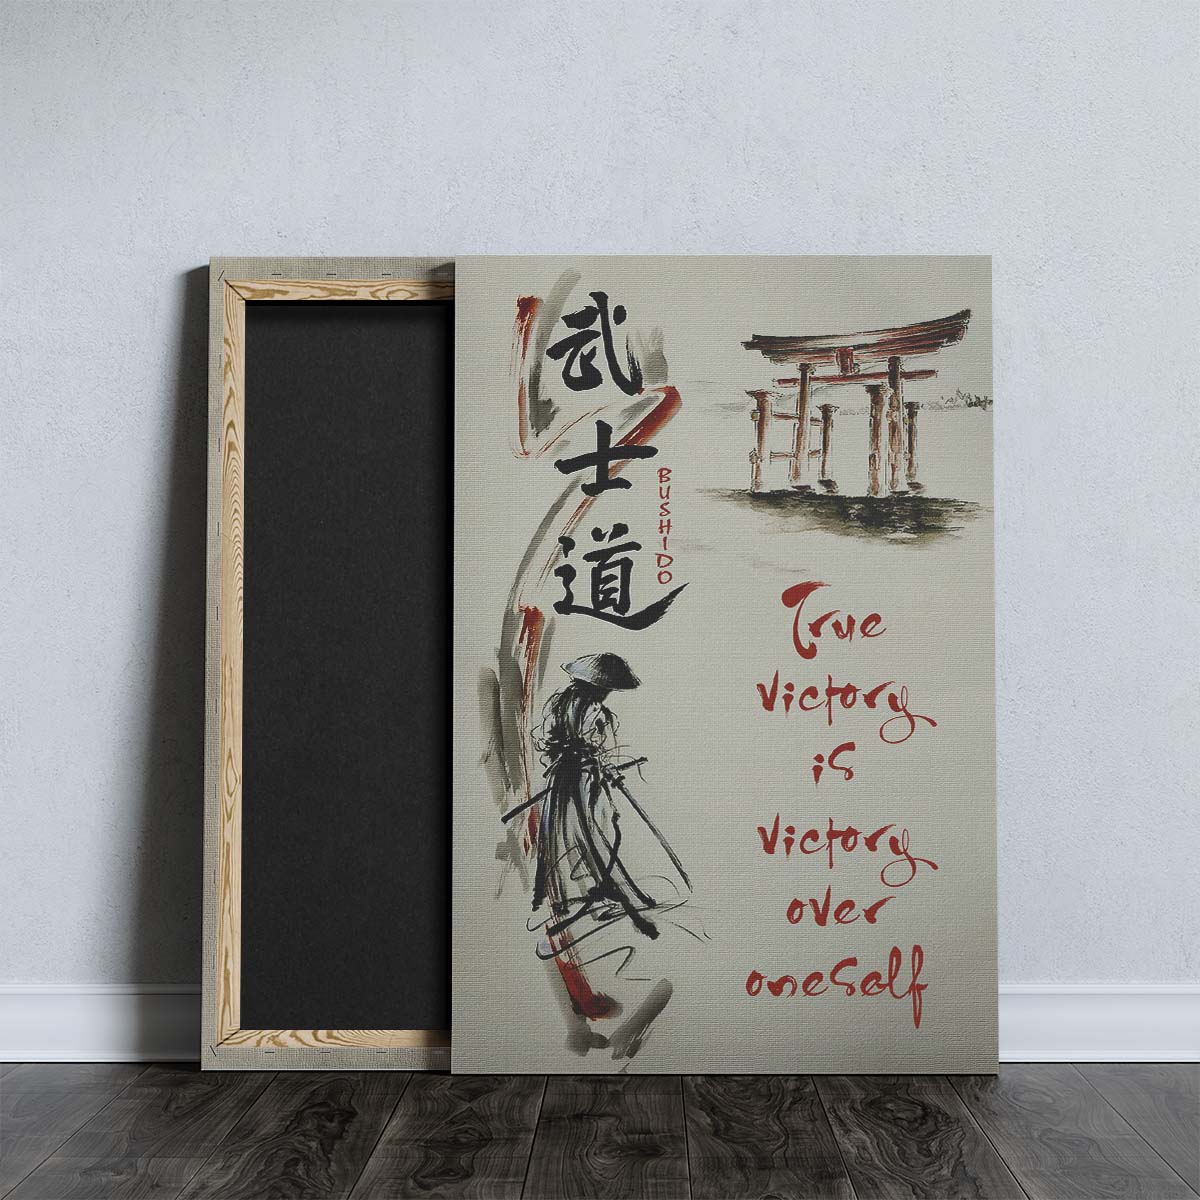 武士道
BUSHIDO
True
victory
is
victory
over
oneself